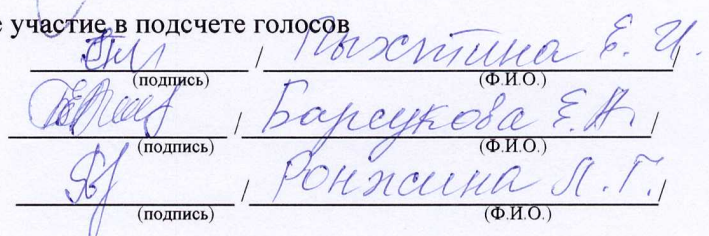 е участие в подсчете голосов
/ Пыхтина Е. И. /
(подпись) (Ф.И.О.)
/ Барсукова Е.А. /
(подпись) (Ф.И.О.)
/ Ронжина Л.Г. /
(подпись) (Ф.И.О.)